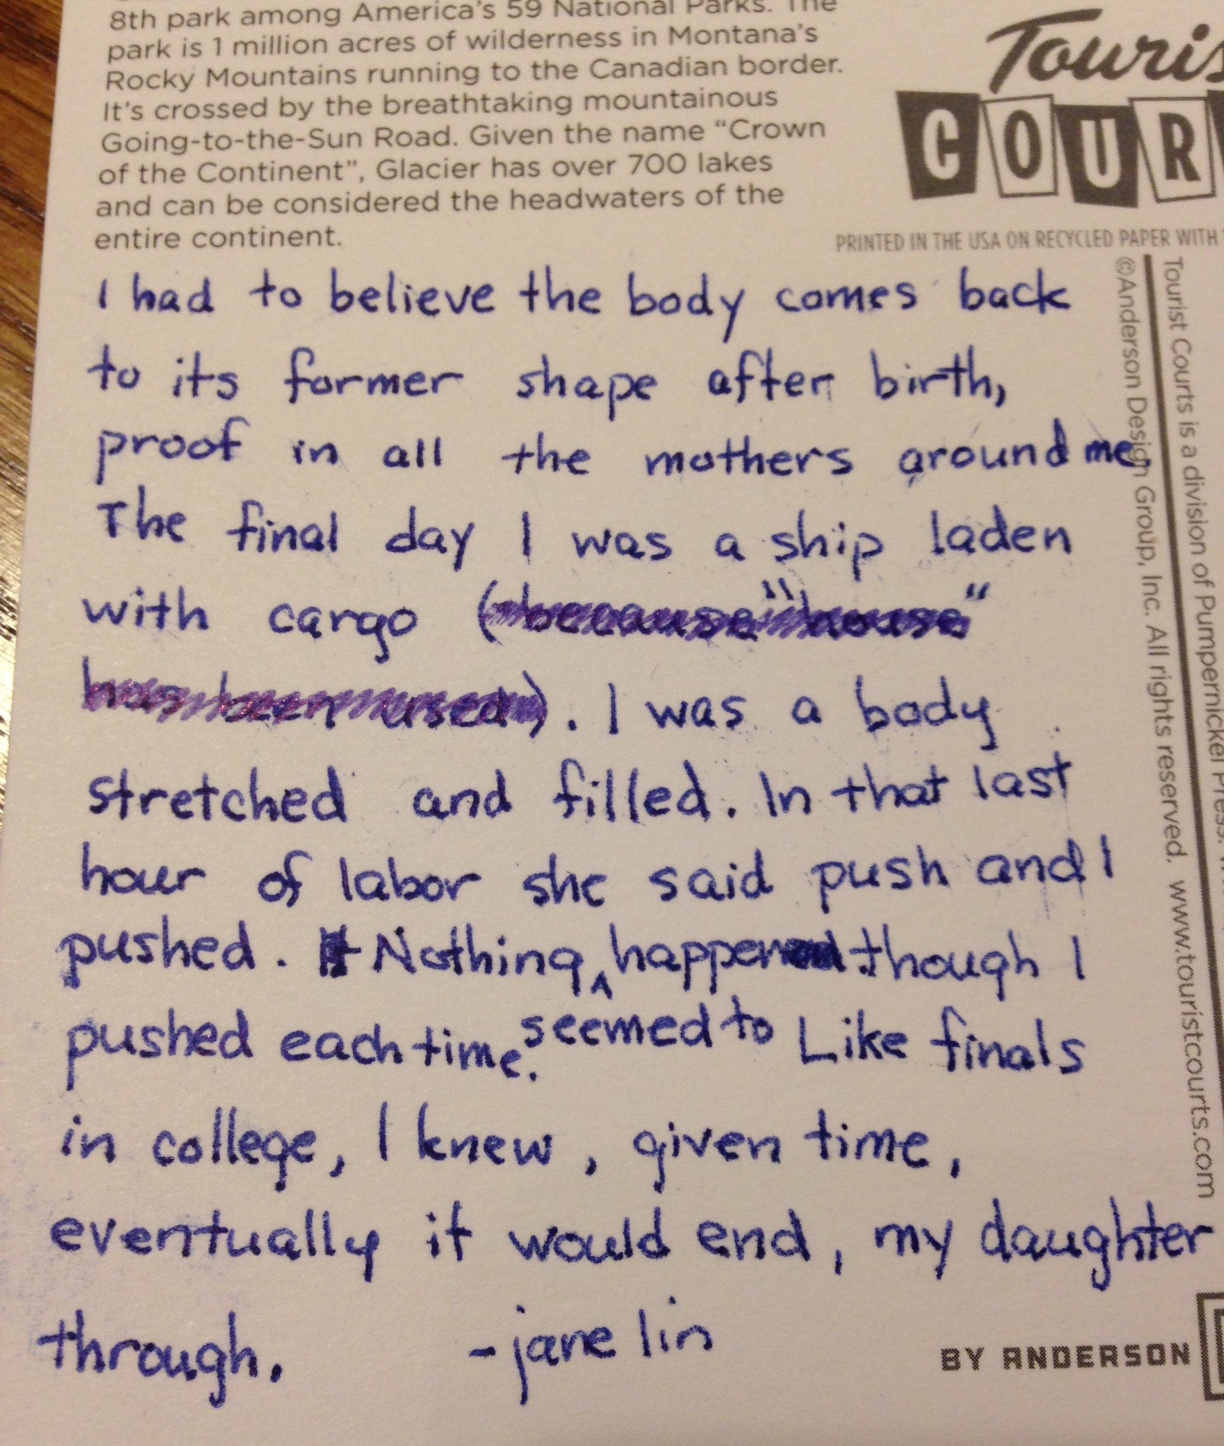 8th park among America's 59 National Parks. The
park is 1 million acres of wilderness in Montana's
Rocky Mountains running to the Canadian border.
It's crossed by the breathtaking mountainous
Going-to-the-Sun Road. Given the name “Crown
of the Continent”, Glacier has over 700 lakes
and can be considered the headwaters of the
entire continent.
Touris
COUR
PRINTED IN THE USA ON RECYCLED PAPER WITH
I had to believe the body comes back
to its former shape after birth,
proof in all the mothers around me.
The final day I was a ship laden
with cargo (because "house"
has been used). I was a body
stretched and filled. In that last
hour of labor she said push and I
pushed. It Nothing ^ happened though I
pushed each time. seemed to Like finals
in college, I knew, given time,
eventually it would end, my daughter
through. - jane lin
©Anderson Design Group, Inc. All rights reserved. www.touristcourts.com
Tourist Courts is a division of Pumpernickel Press.
BY ANDERSON